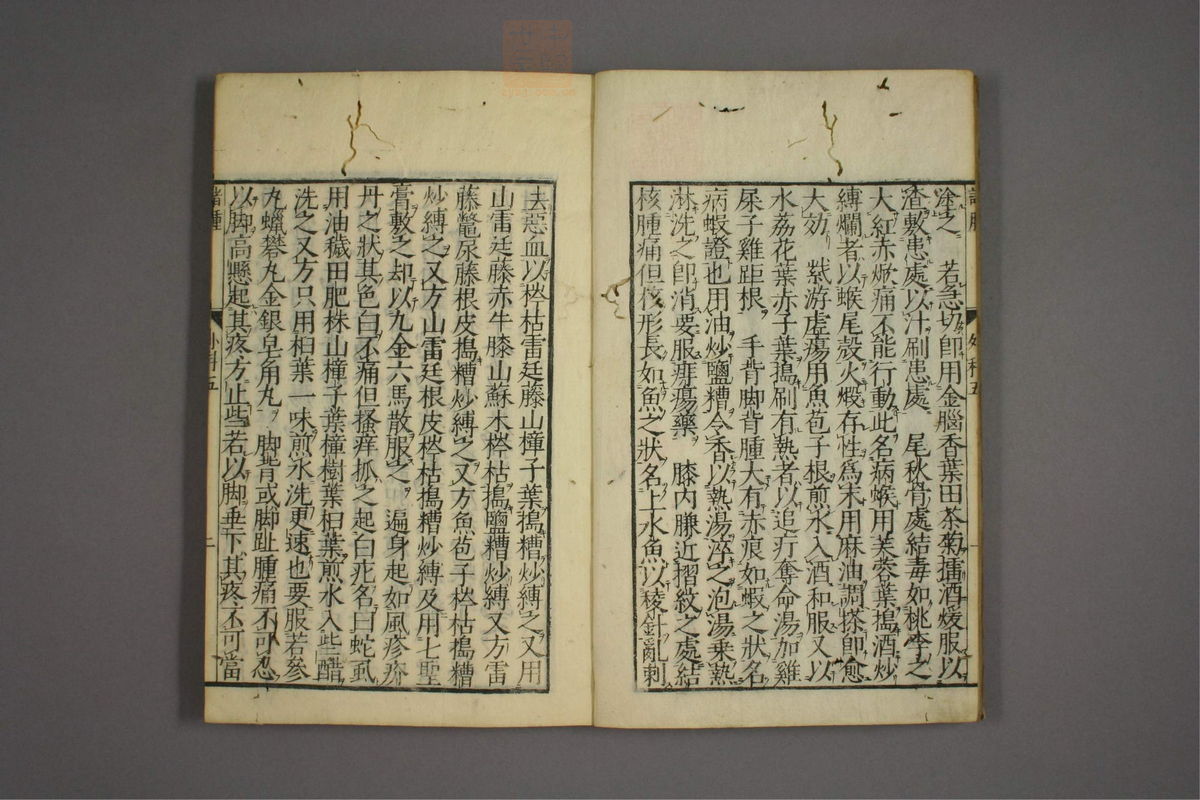 塗之　若急切即用金腦香葉田茶菊擂酒煖服以
渣敷患處以汁刷患處　尾秋骨處結毒如桃李之
大紅赤焮痛不能行動此名病蝦用芙蓉葉搗酒炒
縛爛者以蝦尾殼火煅存性為末用麻油調搽即愈
大効　紫游虛瘍用魚苞子根煎水入酒和服又以
水荔花葉赤子葉搗刷有熱者以追疔奪命湯加雞
屎子雞距根　手背脚背腫大有赤痕如蝦之狀名
病蝦證也用油炒鹽糟令香以熱湯淬之泡湯乗熱
淋洗之即消要服痈瘍藥　膝内臁近摺紋之處結
核腫痛但核形長如魚之狀名上水魚以稜針亂刺
去惡血以桚枯雷廷藤山樟子葉搗糟炒縛之又用
山雷廷藤赤牛膝山蘇木桚枯搗鹽糟炒縛又方雷
藤鱉尿藤根皮搗糟炒縛之又方魚苞子桚枯搗糟
炒縛之又方山雷廷根皮桚枯搗糟炒縛及用七聖
膏敷之却以九金六馬散服之　遍身起如風疹疥
丹之狀其色白不痛但搔痒抓之起白疕名曰蛇虱
用油穢田肥株山樟子葉樟樹葉桕葉煎水入些醋
洗之又方只用桕葉一味煎水洗更速也要服若參
丸蠟礬丸金銀皂角丸　脚背或脚趾腫痛不可忍
以脚高懸起其疼方止些若以脚垂下其疼不可當
諸腫　外科五　二